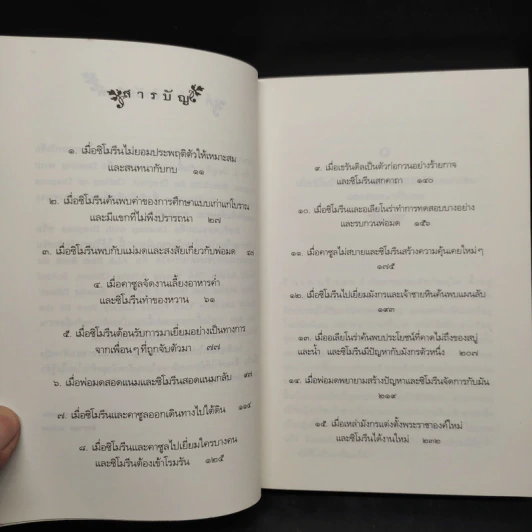 สารบัญ
๑. เมื่อซิโมรีนไม่ยอมประพฤติตัวให้เหมาะสม
และสนทนากับกบ ๑๑
๒. เมื่อซิโมรีนค้นพบค่าของการศึกษาแบบเก่าแก่โบราณ
และมีแขกที่ไม่พึงปรารถนา ๒๗
๓. เมื่อซิโมรีนพบกับแม่มดและสงสัยเกี่ยวกับพ่อมด
๔. เมื่อคาซูลจัดงานเลี้ยงอาหารค่ำ
และซิโมรีนทำของหวาน ๖๑
๕. เมื่อซิโมรีนต้อนรับการมาเยี่ยมอย่างเป็นทางการ
จากเพื่อนๆ ที่ถูกจับตัวมา ๗๗
๖. เมื่อพ่อมดสอดแนมและซิโมรีนสอดแนมกลับ ๙๗
๗. เมื่อซิโมรีนและคาซูลออกเดินทางไปใต้ดิน ๑๑๔
๘. เมื่อซิโมรีนและคาซูลไปเยี่ยมใครบางคน
และซิโมรีนต้องเข้าโรมรัน ๑๒๕
๙. เมื่อเธรันดิลเป็นตัวก่อกวนอย่างร้ายกาจ
และซิโมรีนเสกคาถา ๑๔๐
๑๐. เมื่อซิโมรีนและอเลียโนร่าทำการทดสอบบางอย่าง
และรบกวนพ่อมด ๑๕๖
๑๑. เมื่อคาซูลไม่สบายและซิโมรีนสร้างความคุ้นเคยใหม่ๆ
๑๗๕
๑๒. เมื่อซิโมรีนไปเยี่ยมมังกรและเจ้าชายหินค้นพบแผนลับ
๑๙๓
๑๓. เมื่ออเลียโนร่าค้นพบประโยชน์ที่คาดไม่ถึงของสบู่
และน้ำ และซิโมรีนมีปัญหากับมังกรตัวหนึ่ง ๒๐๗
๑๔. เมื่อพ่อมดพยายามสร้างปัญหาและซิโมรีนจัดการกับมัน
๒๑๙
๑๕. เมื่อเหล่ามังกรแต่งตั้งพระราชาองค์ใหม่
และซิโมรีนได้งานใหม่ ๒๓๒